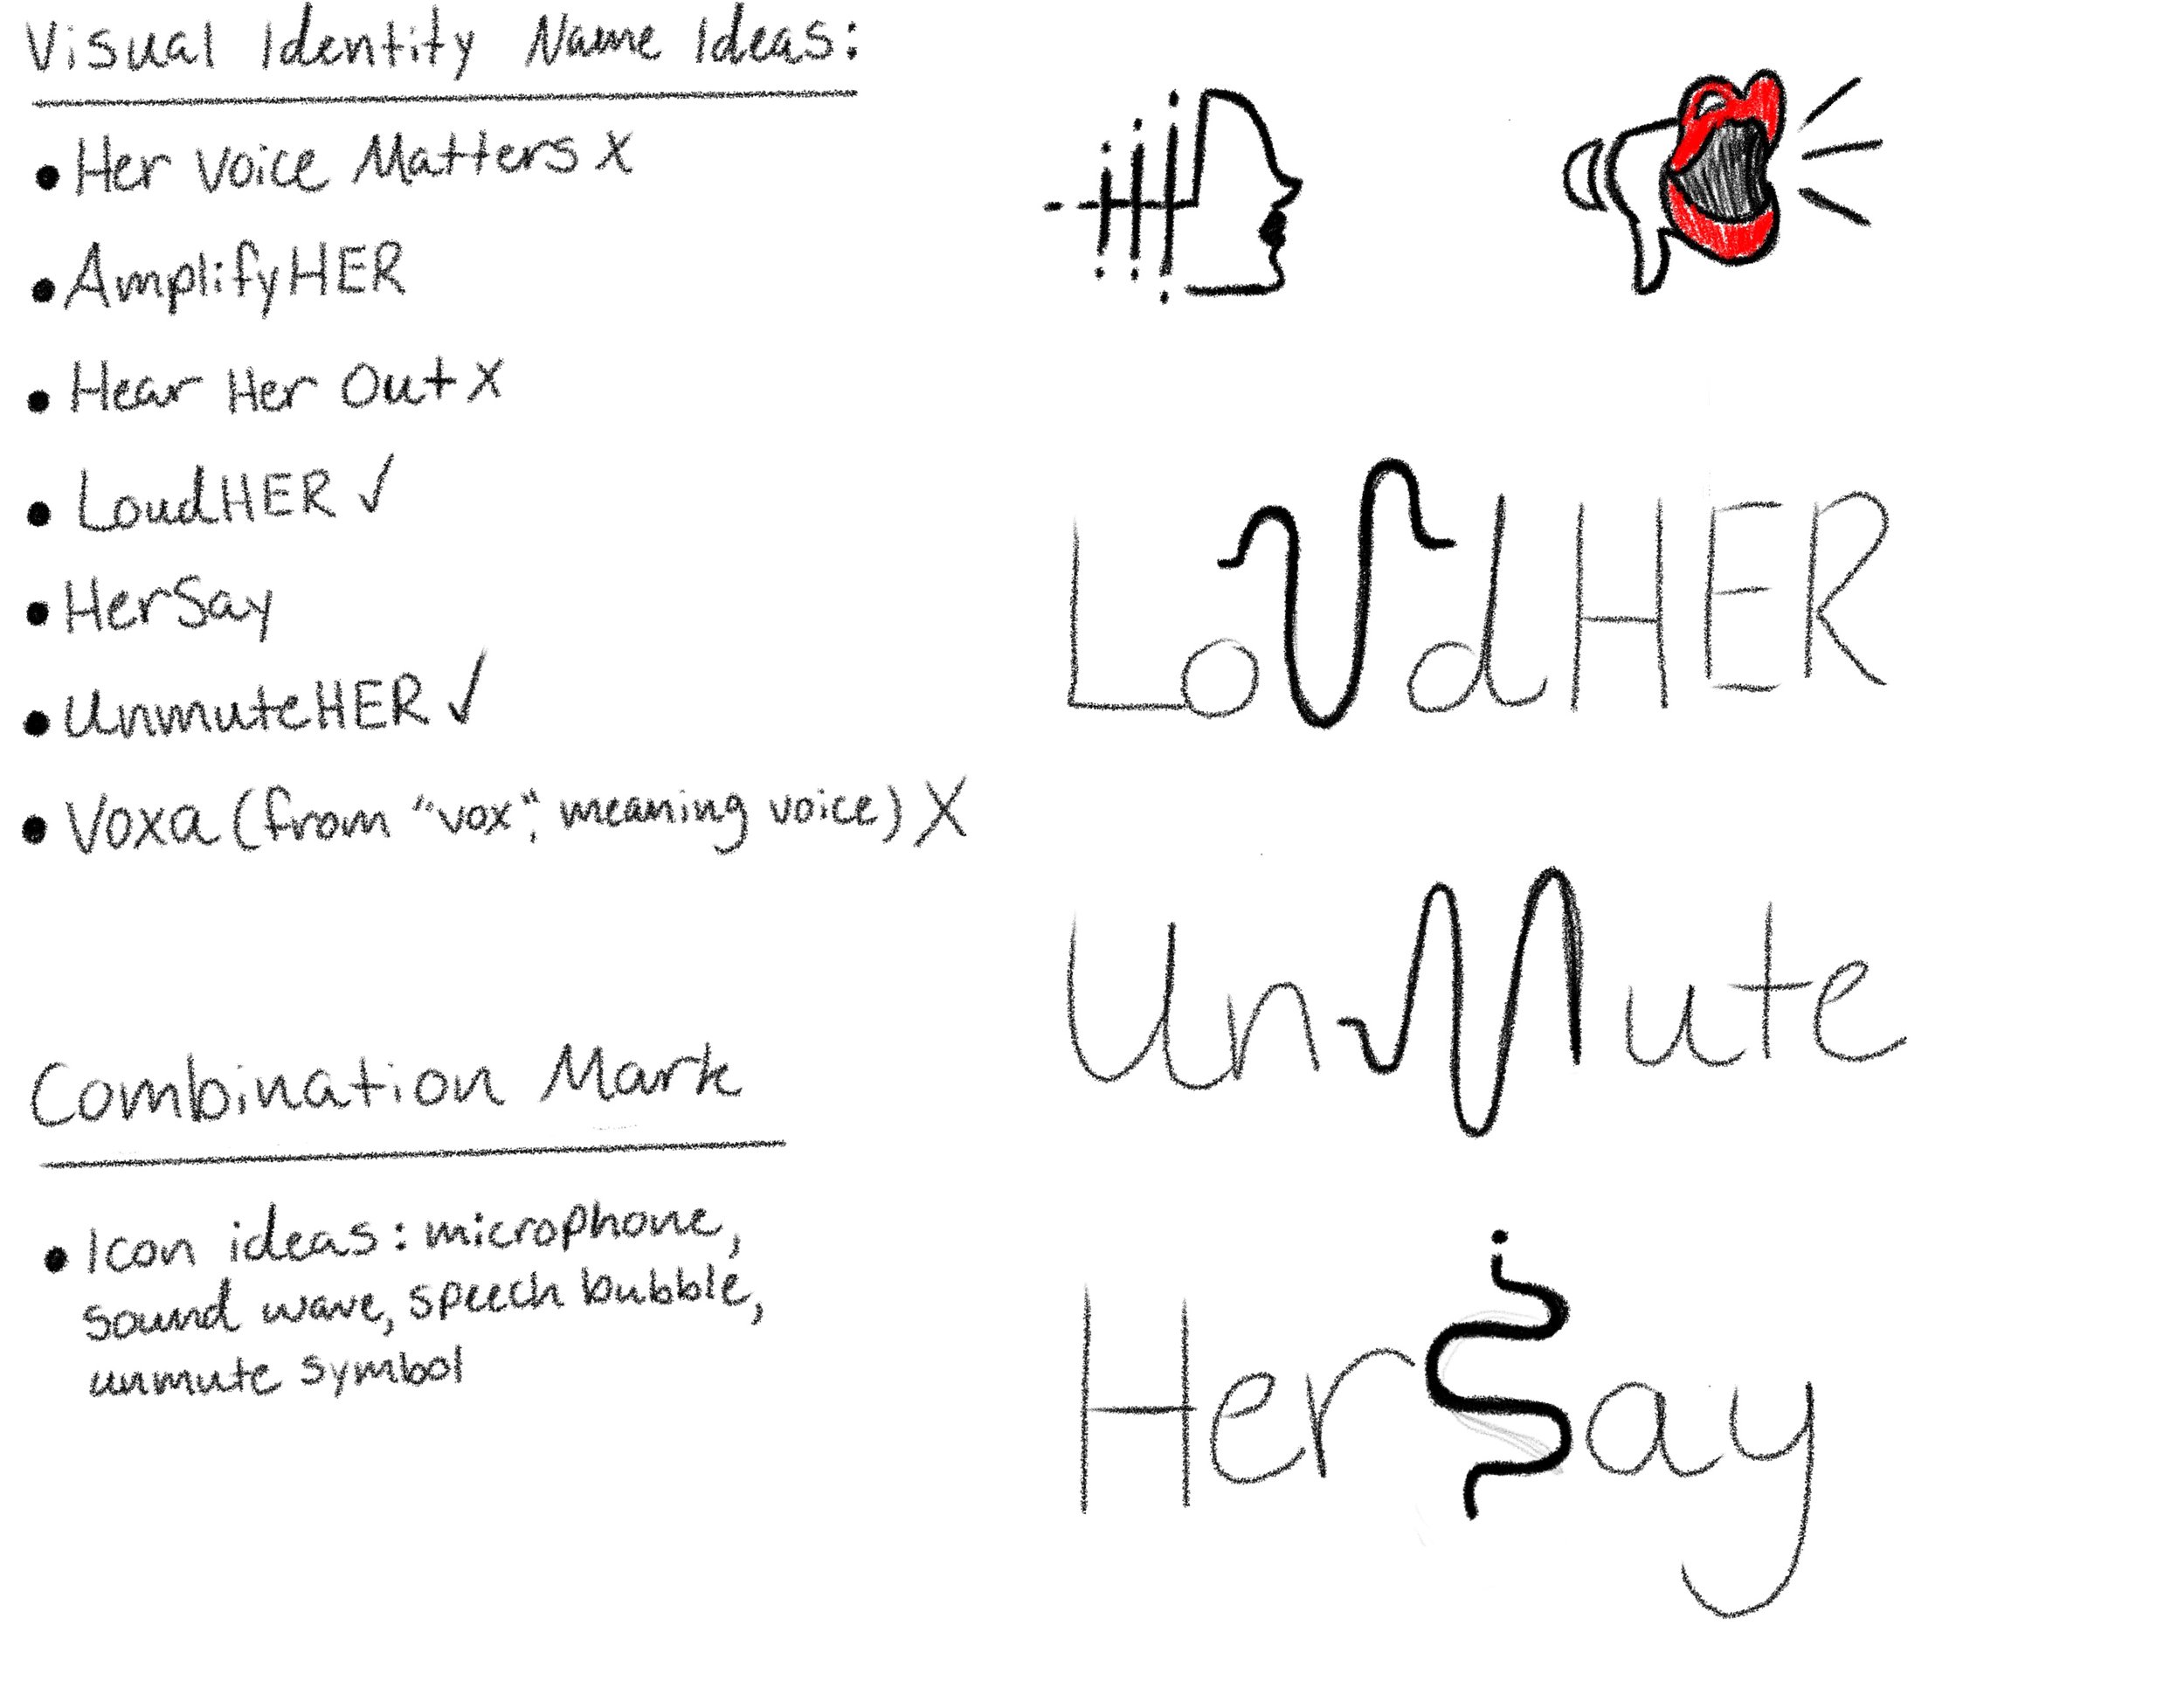 Visual Identity Name Ideas:
• Her Voice Matters X
• AmplifyHER
• Hear Her Out X
• LoudHER ✓
• HerSay
• UnmuteHER ✓
• Voxa (from "vox", meaning voice) X
Combination Mark
• Icon ideas: microphone,
sound wave, speech bubble,
unmute symbol
LoudHER
UnMute
HerSay